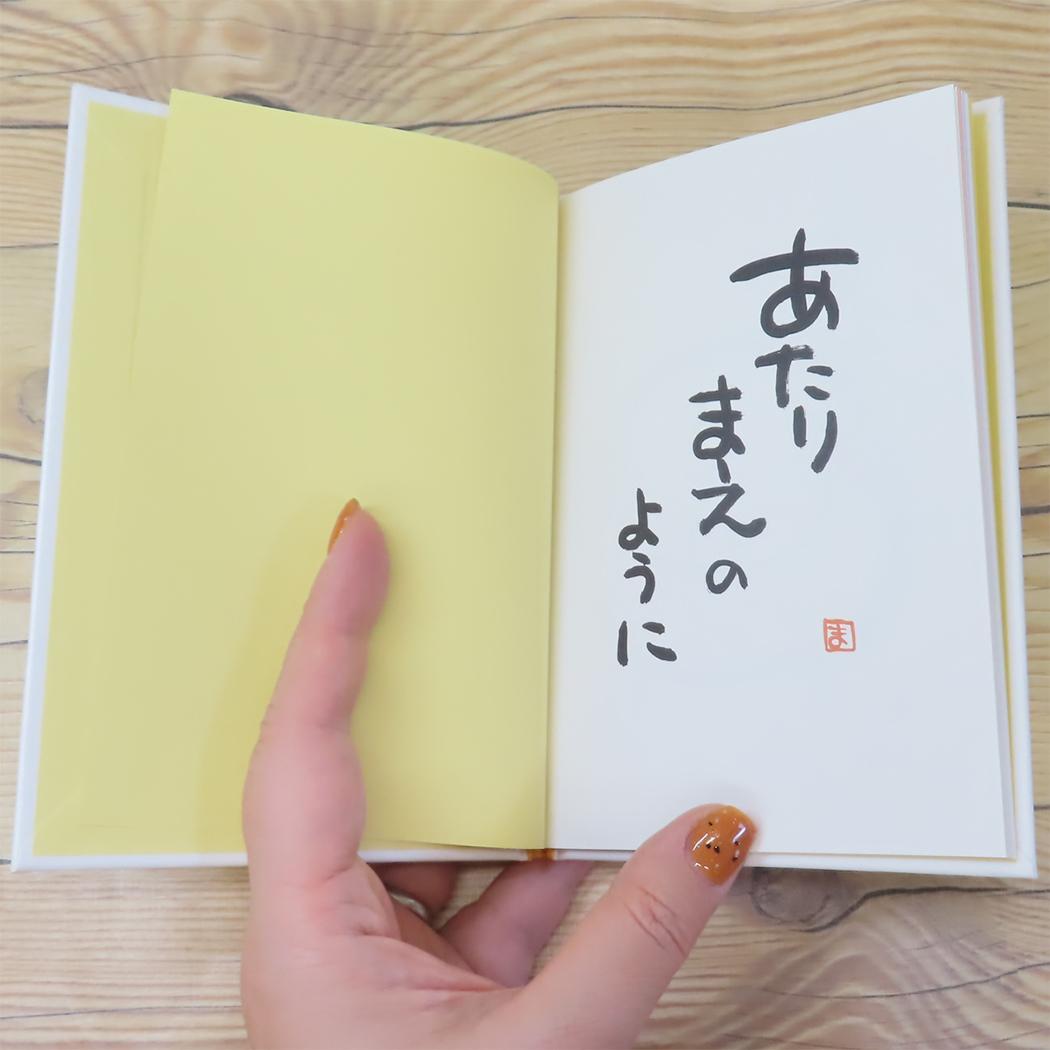 あたり
まえの
ように
ま